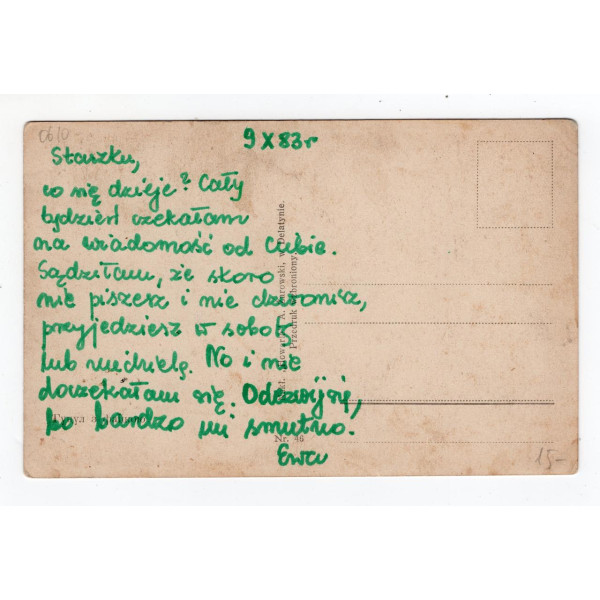 9 X 83r
Staszku,
co się dzieje? Cały
tydzień czekałam
na wiadomość od Ciebie.
Sądziłam, że skoro
nie piszesz i nie dzwonisz,
przyjedziesz w sobotę
lub niedzielę. No i nie
doczekałam się. Odezwij się,
bo bardzo mi smutno.
Ewa
w Delatynie.
Przedruk
Nr. 46
15-